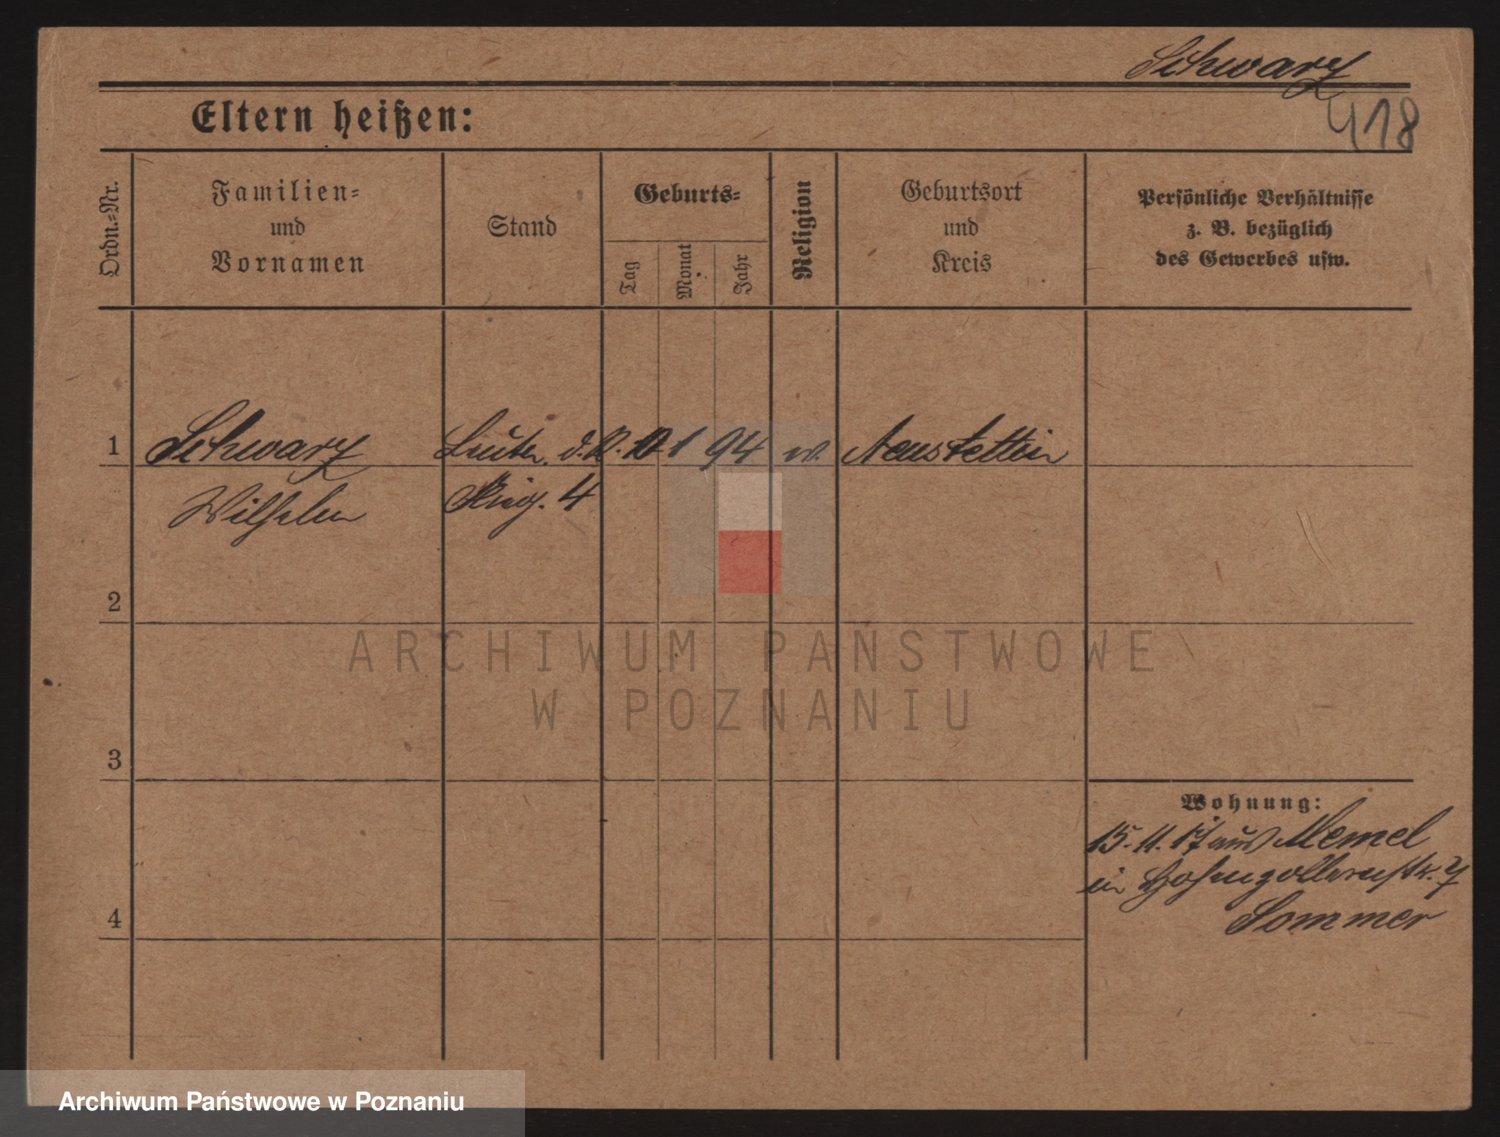 Schwarz
418
Eltern heißen:
Ordn.=Nr.
Familien=
und
Vornamen
Stand
Geburts=
Tag
Monat
Jahr
Religion
Geburtsort
und
Kreis
Persönliche Verhältnisse
z. B. bezüglich
des Gewerbes usw.
1
Schwarz
Wilhelm
d. R.
4
1
94
Neustettin
2
3
4
ARCHIWUM PAŃSTWOWE
W POZNANIU
Wohnung:
15.11.17 aus Memel
in Hohenzollernstr. 7
Sommer
Archiwum Państwowe w Poznaniu